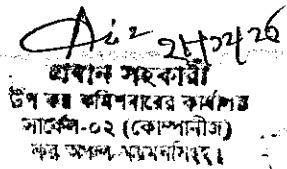 21/12/26
প্রধান সহকারী
উপ কর কমিশনারের কার্যালয়
সার্কেল-০২ (কোম্পানীজ)
কর অঞ্চল-ময়মনসিংহ।